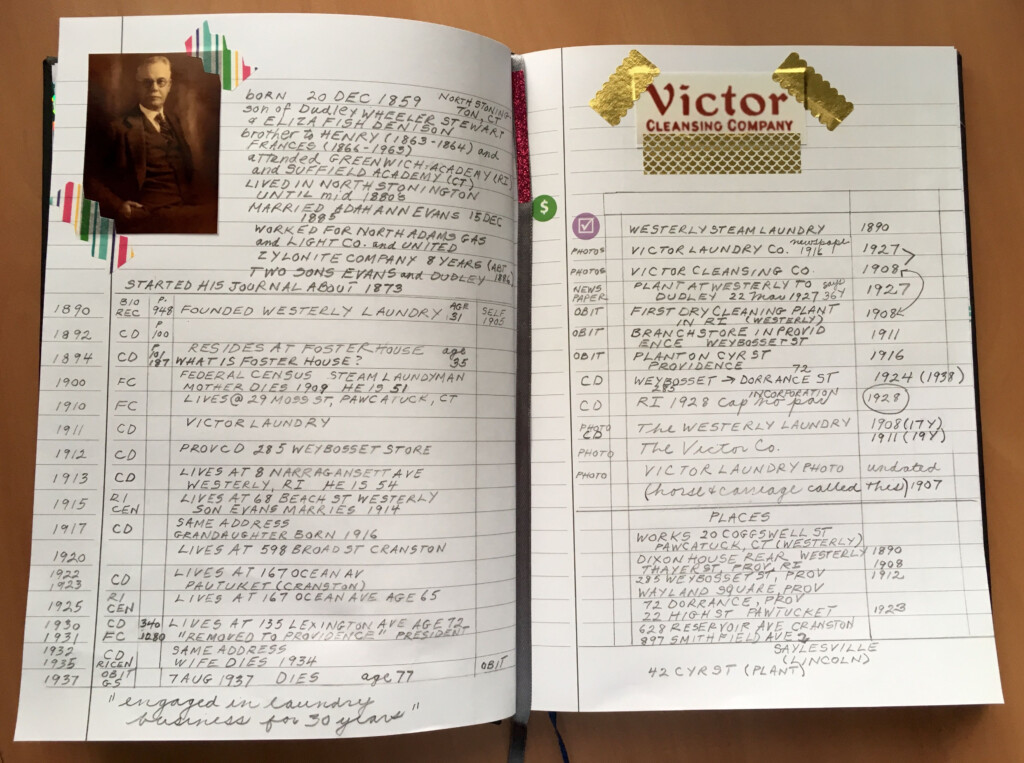 BORN 20 DEC 1859 NORTH STONINGTON, CT
son of Dudley WHEELER STEWART
& ELIZA FISH DENISON
brother to HENRY (1863-1864) and
FRANCES (1866-1963) and
attended GREENWICH ACADEMY (RI)
and SUFFIELD ACADEMY (CT)
LIVED IN NORTH STONINGTON
UNTIL mid 1880s
MARRIED ADAH ANN EVANS 15 DEC
1885
WORKED FOR NORTH ADAMS GAS
and LIGHT CO. and UNITED
ZYLONITE COMPANY 8 YEARS (ABT
TWO SONS EVANS and DUDLEY 1886)
STARTED HIS JOURNAL ABOUT 1873
1890 BIO REC P. 948 FOUNDED WESTERLY LAUNDRY AGE 31 SELF 1905
1892 CD P 100
1894 CD P 101 187 RESIDES AT FOSTER HOUSE age 35
WHAT IS FOSTER HOUSE?
1900 FC FEDERAL CENSUS STEAM LAUNDYMAN
MOTHER DIES 1909 HE IS 51
1910 FC LIVES @ 29 MOSS ST, PAWCATUCK, CT
1911 CD VICTOR LAUNDRY
1912 CD PROV CD 285 WEYBOSSET STORE
1913 CD LIVES AT 8 NARRAGANSETT AVE
WESTERLY, RI HE IS 54
1915 RI CEN LIVES AT 68 BEACH ST WESTERLY
SON EVANS MARRIES 1914
1917 CD SAME ADDRESS
GRANDAUGHTER BORN 1916
1920 LIVES AT 598 BROAD ST CRANSTON
1922
1923 CD LIVES AT 167 OCEAN AV
PAUTUKET (CRANSTON)
1925 RI CEN LIVES AT 167 OCEAN AVE AGE 65
1930 CD 340 LIVES AT 135 LEXINGTON AVE AGE 72
1931 FC 1280 "REMOVED TO PROVIDENCE" PRESIDENT
1932 CD SAME ADDRESS
1935 RICEN WIFE DIES 1934 OBIT
1937 OBIT GS 7 AUG 1937 DIES age 77
"engaged in laundry
business for 30 years"
Victor
CLEANSING COMPANY
$
WESTERLY STEAM LAUNDRY 1890
PHOTOS VICTOR LAUNDRY CO. newspape 1916 1927
PHOTOS VICTOR CLEANSING CO. 1908
NEWS PAPER PLANT AT WESTERLY TO 1927
DUDLEY 22 Mar 1927 36Y
OBIT FIRST DRY CLEANING PLANT 1908
IN RI (WESTERLY)
OBIT BRANCH STORE IN PROVID 1911
ENCE WEYBOSSET ST
OBIT PLANT ON CYR ST 1916
PROVIDENCE
CD WEYBOSSET → 72 DORRANCE ST 1924 (1938)
285 INCORPORATION
CD RI 1928 Cap no par 1928
PHOTO CD THE WESTERLY LAUNDRY 1908 (17Y)
1911 (19Y)
PHOTO The Victor Co.
PHOTO VICTOR LAUNDRY PHOTO undated
(horse & carriage called this) 1907
PLACES
WORKS 20 COGGSWELL ST
PAWCATUCK, CT (WESTERLY)
DIXON HOUSE REAR WESTERLY 1890
THAYER ST, PROV, RI 1908
285 WEYBOSSET ST, PROV 1912
WAYLAND SQUARE, PROV
72 DORRANCE, PROV
22 HIGH ST PAWTUCKET 1923
628 RESERVOIR AVE CRANSTON
897 SMITHFIELD AVE
SAYLESVILLE
(LINCOLN)
42 CYR ST (PLANT)